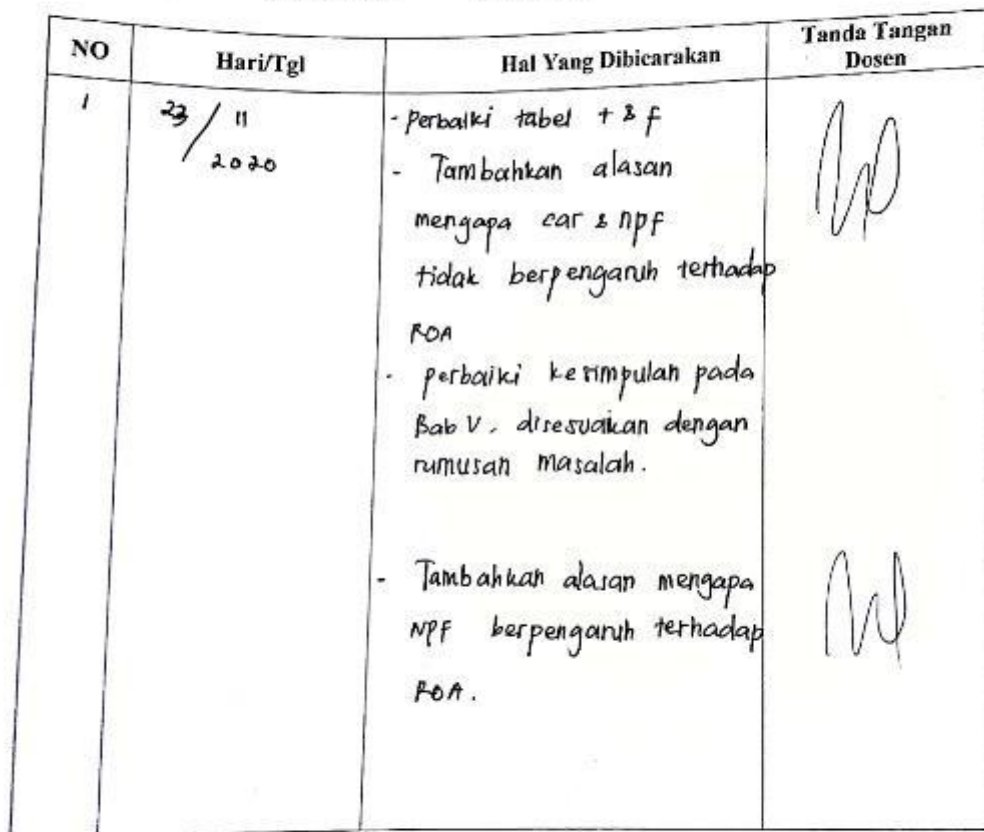 NO Hari/Tgl Hal Yang Dibicarakan Tanda Tangan
Dosen
1 23/11 - perbaiki tabel t & f
2020 - Tambahkan alasan
mengapa car & npf
tidak berpengaruh terhadap
ROA
- perbaiki kesimpulan pada
Bab V, disesuaikan dengan
rumusan masalah.
- Tambahkan alasan mengapa
NPF berpengaruh terhadap
ROA.